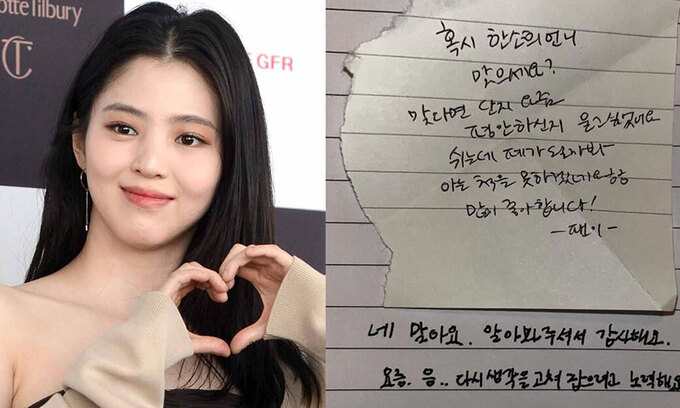 otte Tilbury
GFR
혹시 한소희언니
맞으세요?
맞다면 단지 요즘
평안하신지 궁금했어요
쉬는데 폐가 될까봐
아는 척은 못하겠네요ㅎㅎ
많이 좋아합니다!
-팬이-
네 맞아요. 알아봐주셔서 감사해요.
요즘. 음.. 다시 생각을 고쳐 잡으려고 노력해요